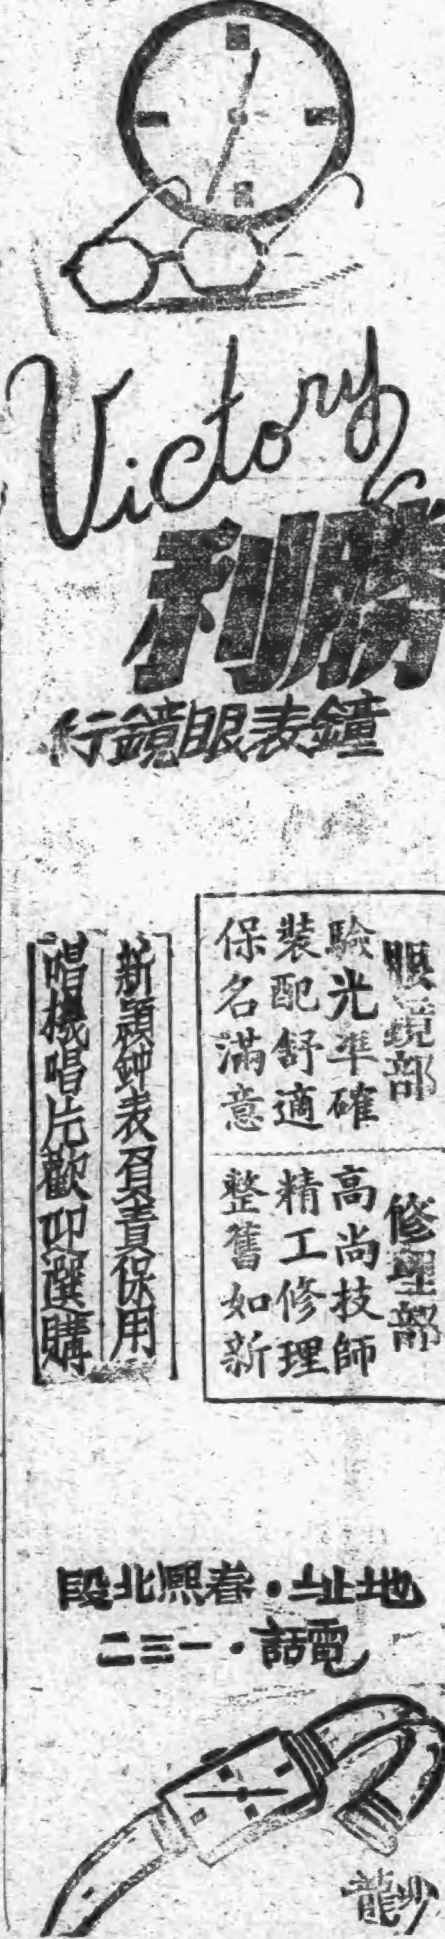 Victory
勝利
鐘表眼鏡行
眼鏡部
驗光準確
裝配舒適
保名滿意
修理部
高尚技師
精工修理
整舊如新
新穎鐘表負責保用
唱機唱片歡迎選購
地址·春熙北段
電話·一三二